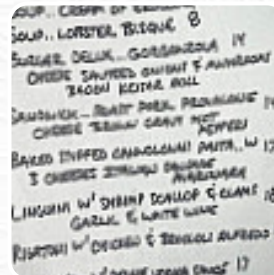 SOUP.. CREAM OF
SOUP.. LOBSTER BISQUE 8
BURGER DELUX.. GORGONZOLA 14
CHEESE SAUTEED ONIONS & MUSHROOMS
KEISAR ROLL
SANDWICH.. ROAST PORK, PROVOLONE
CHEESE BROWN GRAVY HOT
PEPPERS
BAKED STUFFED CANNOLONNI PASTA.. W 17
3 CHEESES ITALIAN SAUSAGE
MARINARA
LINGUINI W' SHRIMP SCALLOP & CLAMS 18
GARLIC & WHITE WINE
RIGATONI W' CHICKEN & BROCCOLI ALFREDO
17